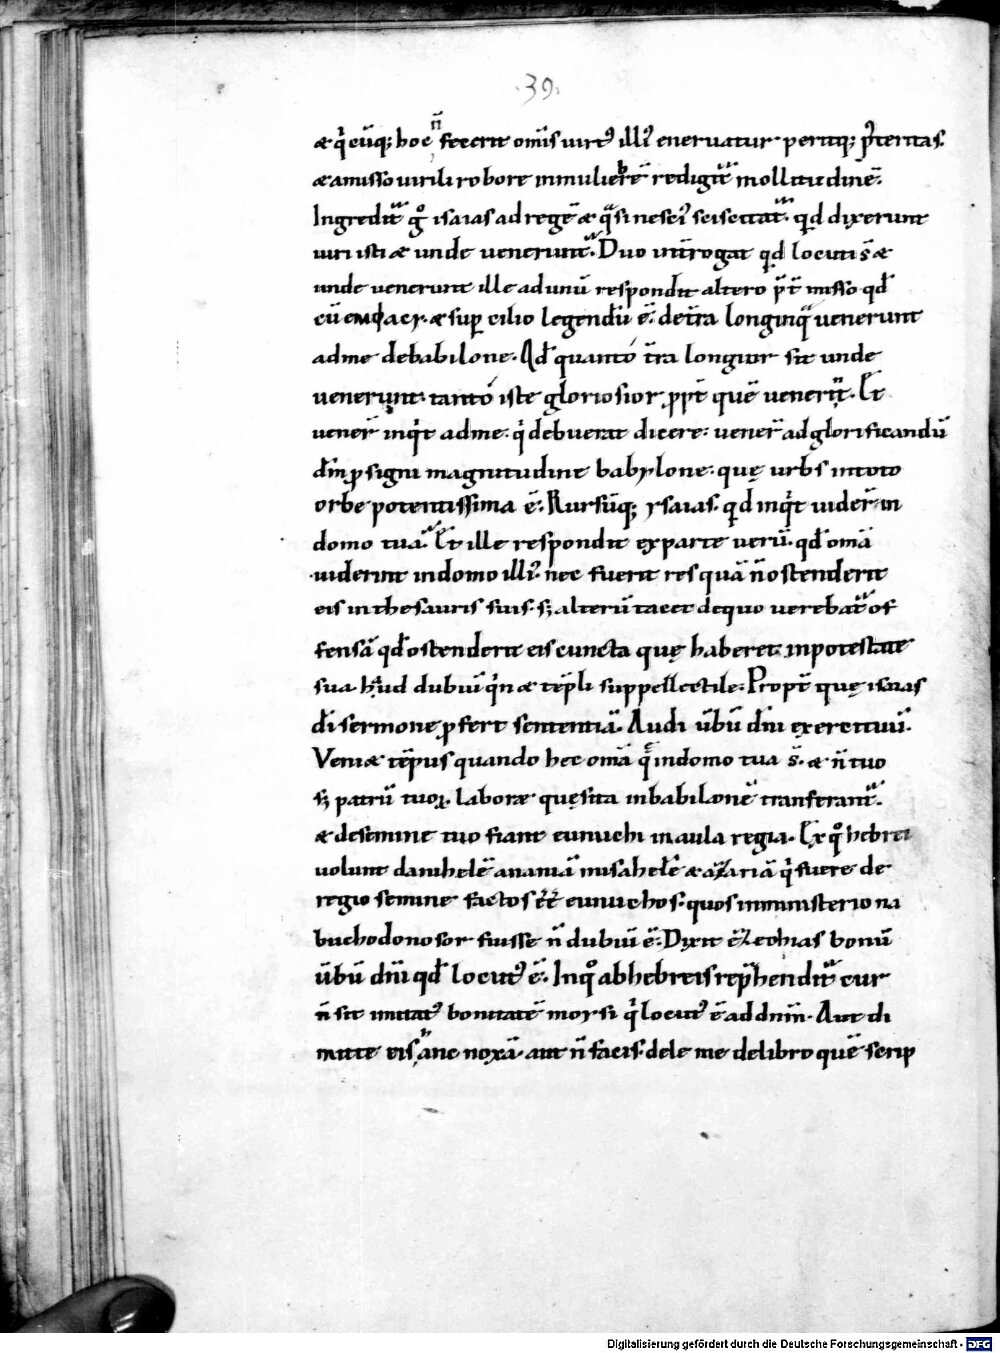 .39.
& q̇cūq; hoc n̄ fecerit om̄is uirt᷒ illi᷒ eneruatur peritq; p̄teritas.
& amisso uirili robore in muliebrē redigit̄ mollitudinē.
Ingredit̄ gͦ isaias ad regē & qͣsi nesci᷒ sciscitat̄. qd dixerunt
uiri isti & unde uenerunt. Duo int̄rogat qd locuti s̄ &
unde uenerunt ille ad unū respondit altero p̄t̄misso qđ
cū emphacy. & supcilio legendū ē. de t̄ra longinqͣ uenerunt
ad me de babilone. Ađ quanto t̄ra longior sit unde
uenerunt. tanto iste gloriosior ppt̄ quē uener̄t. Et
uener̄ inqͥt ad me. qͥ debuerat dicere. uener̄ ad glorificandū
dm̄ p signi magnitudine babylone. quę urbs in toto
orbe potentissima ē. Rursūq; ysaias. qd inqͥt uider̄ in
domo tua. Et ille respondit ex parte uerū. qđ om̄a
uiderint in domo illi᷒. nec fuerit res quā n̄ ostenderit
eis in thesauris suis. s; alterū tacet de quo uerebat̄ of
fensā qđ ostenderit eis cuncta quę haberet in potestate
sua. haud dubiū qͥn & tēpli suppellectile. Propt̄ quę isaias
dī sermone pfert sententiā. Audi ūbū dn̄i exercituū.
Veni& tēpus quando hec om̄a quę in domo tua s̄. & n̄ tuo
s; patrū tuoꝝ labore quęsita in babilonē transferant̄.
& de semine tuo fiant eunuchi in aula regia. Ex qͦ hebrei
uolunt danihelē ananiā misahelē & azariā qͥ fuere de
regio semine factos ēē eunuchos. quos in ministerio na
buchodonosor fuisse n̄ dubiū ē. Dixit ezechias bonū
ūbū dn̄i qđ locut᷒ ē. In qͦ ab hebreis rep̄hendit̄ cur
n̄ sit imitat᷒ bonitatē moysi qͥ locut᷒ ē ad dnm̄. Aut di
mitte eis hanc noxā. aut n̄ facis. dele me de libro quē scrip
Digitalisierung gefördert durch die Deutsche Forschungsgemeinschaft - DFG